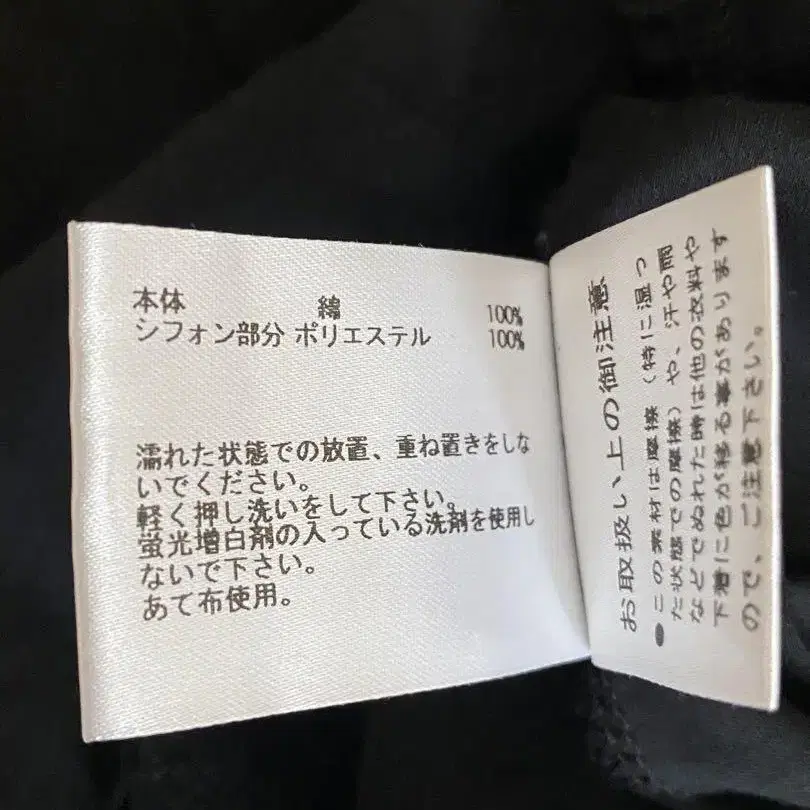 本体 綿 100%
シフォン部分 ポリエステル 100%
濡れた状態での放置、重ね置きをしな
いでください。
軽く押し洗いをして下さい。
蛍光増白剤の入っている洗剤を使用し
ないで下さい。
あて布使用。
お取扱い上の御注意
●この素材は摩擦(特に湿っ
た状態での摩擦)や、汗や雨
などでぬれた時は他の衣料や
下着に色が移る事があります
ので、ご注意下さい。